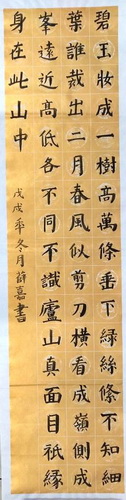 碧玉妝成一樹高萬條垂下綠絲條不知細
葉誰裁出二月春風似剪刀橫看成嶺側成
峯遠近高低各不同不識廬山真面目祇緣
身在此山中
戊戌年冬月薛嘉書